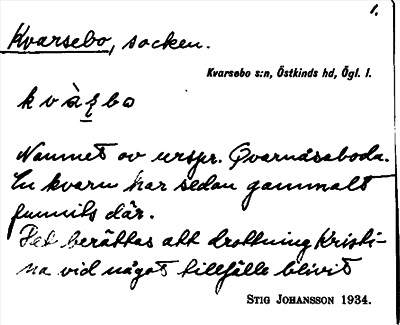 1.
Kvarsebo, socken.
Kvarsebo s:n, Östkinds hd, Ögl. l.
kvàr̥bo
Namnet av urspr. Qvarnåsaboda.
En kvarn har sedan gammalt
funnits där.
Det berättas att drottning Kristi-
na vid något tillfälle blivit
STIG JOHANSSON 1934.